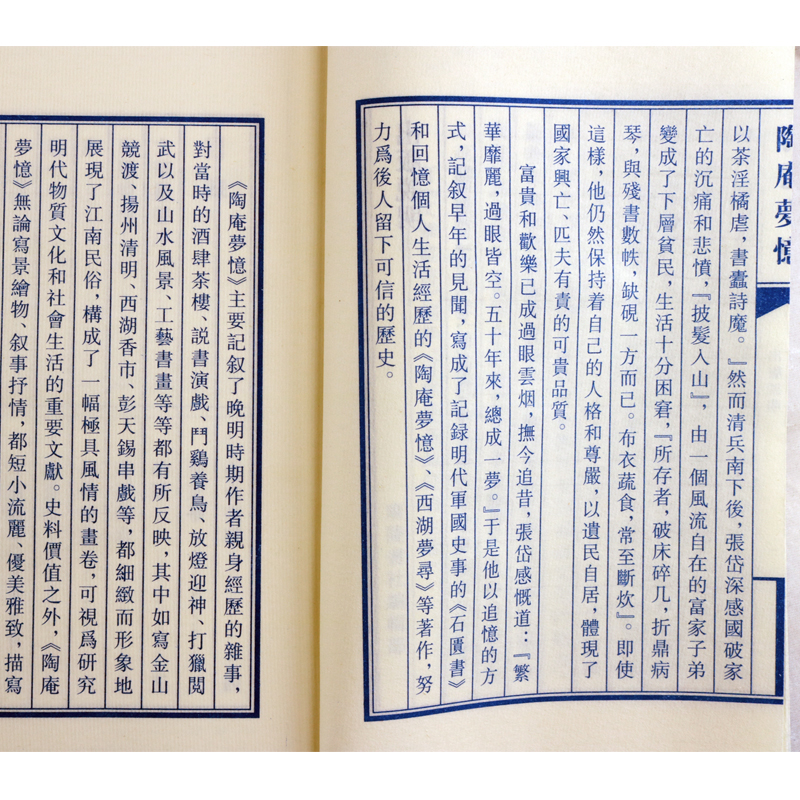 陶庵夢憶
以茶淫橘虐，書蠹詩魔。』然而清兵南下後，張岱深感國破家
亡的沉痛和悲憤，『披髮入山』，由一個風流自在的富家子弟
變成了下層貧民，生活十分困窘，『所存者，破床碎几，折鼎病
琴，與殘書數帙，缺硯一方而已。布衣蔬食，常至斷炊』。即使
這樣，他仍然保持着自己的人格和尊嚴，以遺民自居，體現了
國家興亡、匹夫有責的可貴品質。
富貴和歡樂已成過眼雲烟，撫今追昔，張岱感慨道：『繁
華靡麗，過眼皆空。五十年來，總成一夢。』于是他以追憶的方
式，記叙早年的見聞，寫成了記録明代軍國史事的《石匱書》
和回憶個人生活經歷的《陶庵夢憶》、《西湖夢尋》等著作，努
力爲後人留下可信的歷史。
《陶庵夢憶》主要記叙了晚明時期作者親身經歷的雜事，
對當時的酒肆茶樓、説書演戲、鬥鷄養鳥、放燈迎神、打獵閱
武以及山水風景、工藝書畫等等都有所反映，其中如寫金山
競渡、揚州清明、西湖香市、彭天錫串戲等，都細緻而形象地
展現了江南民俗，構成了一幅極具風情的畫卷，可視爲研究
明代物質文化和社會生活的重要文獻。史料價值之外，《陶庵
夢憶》無論寫景繪物、叙事抒情，都短小流麗、優美雅致，描寫